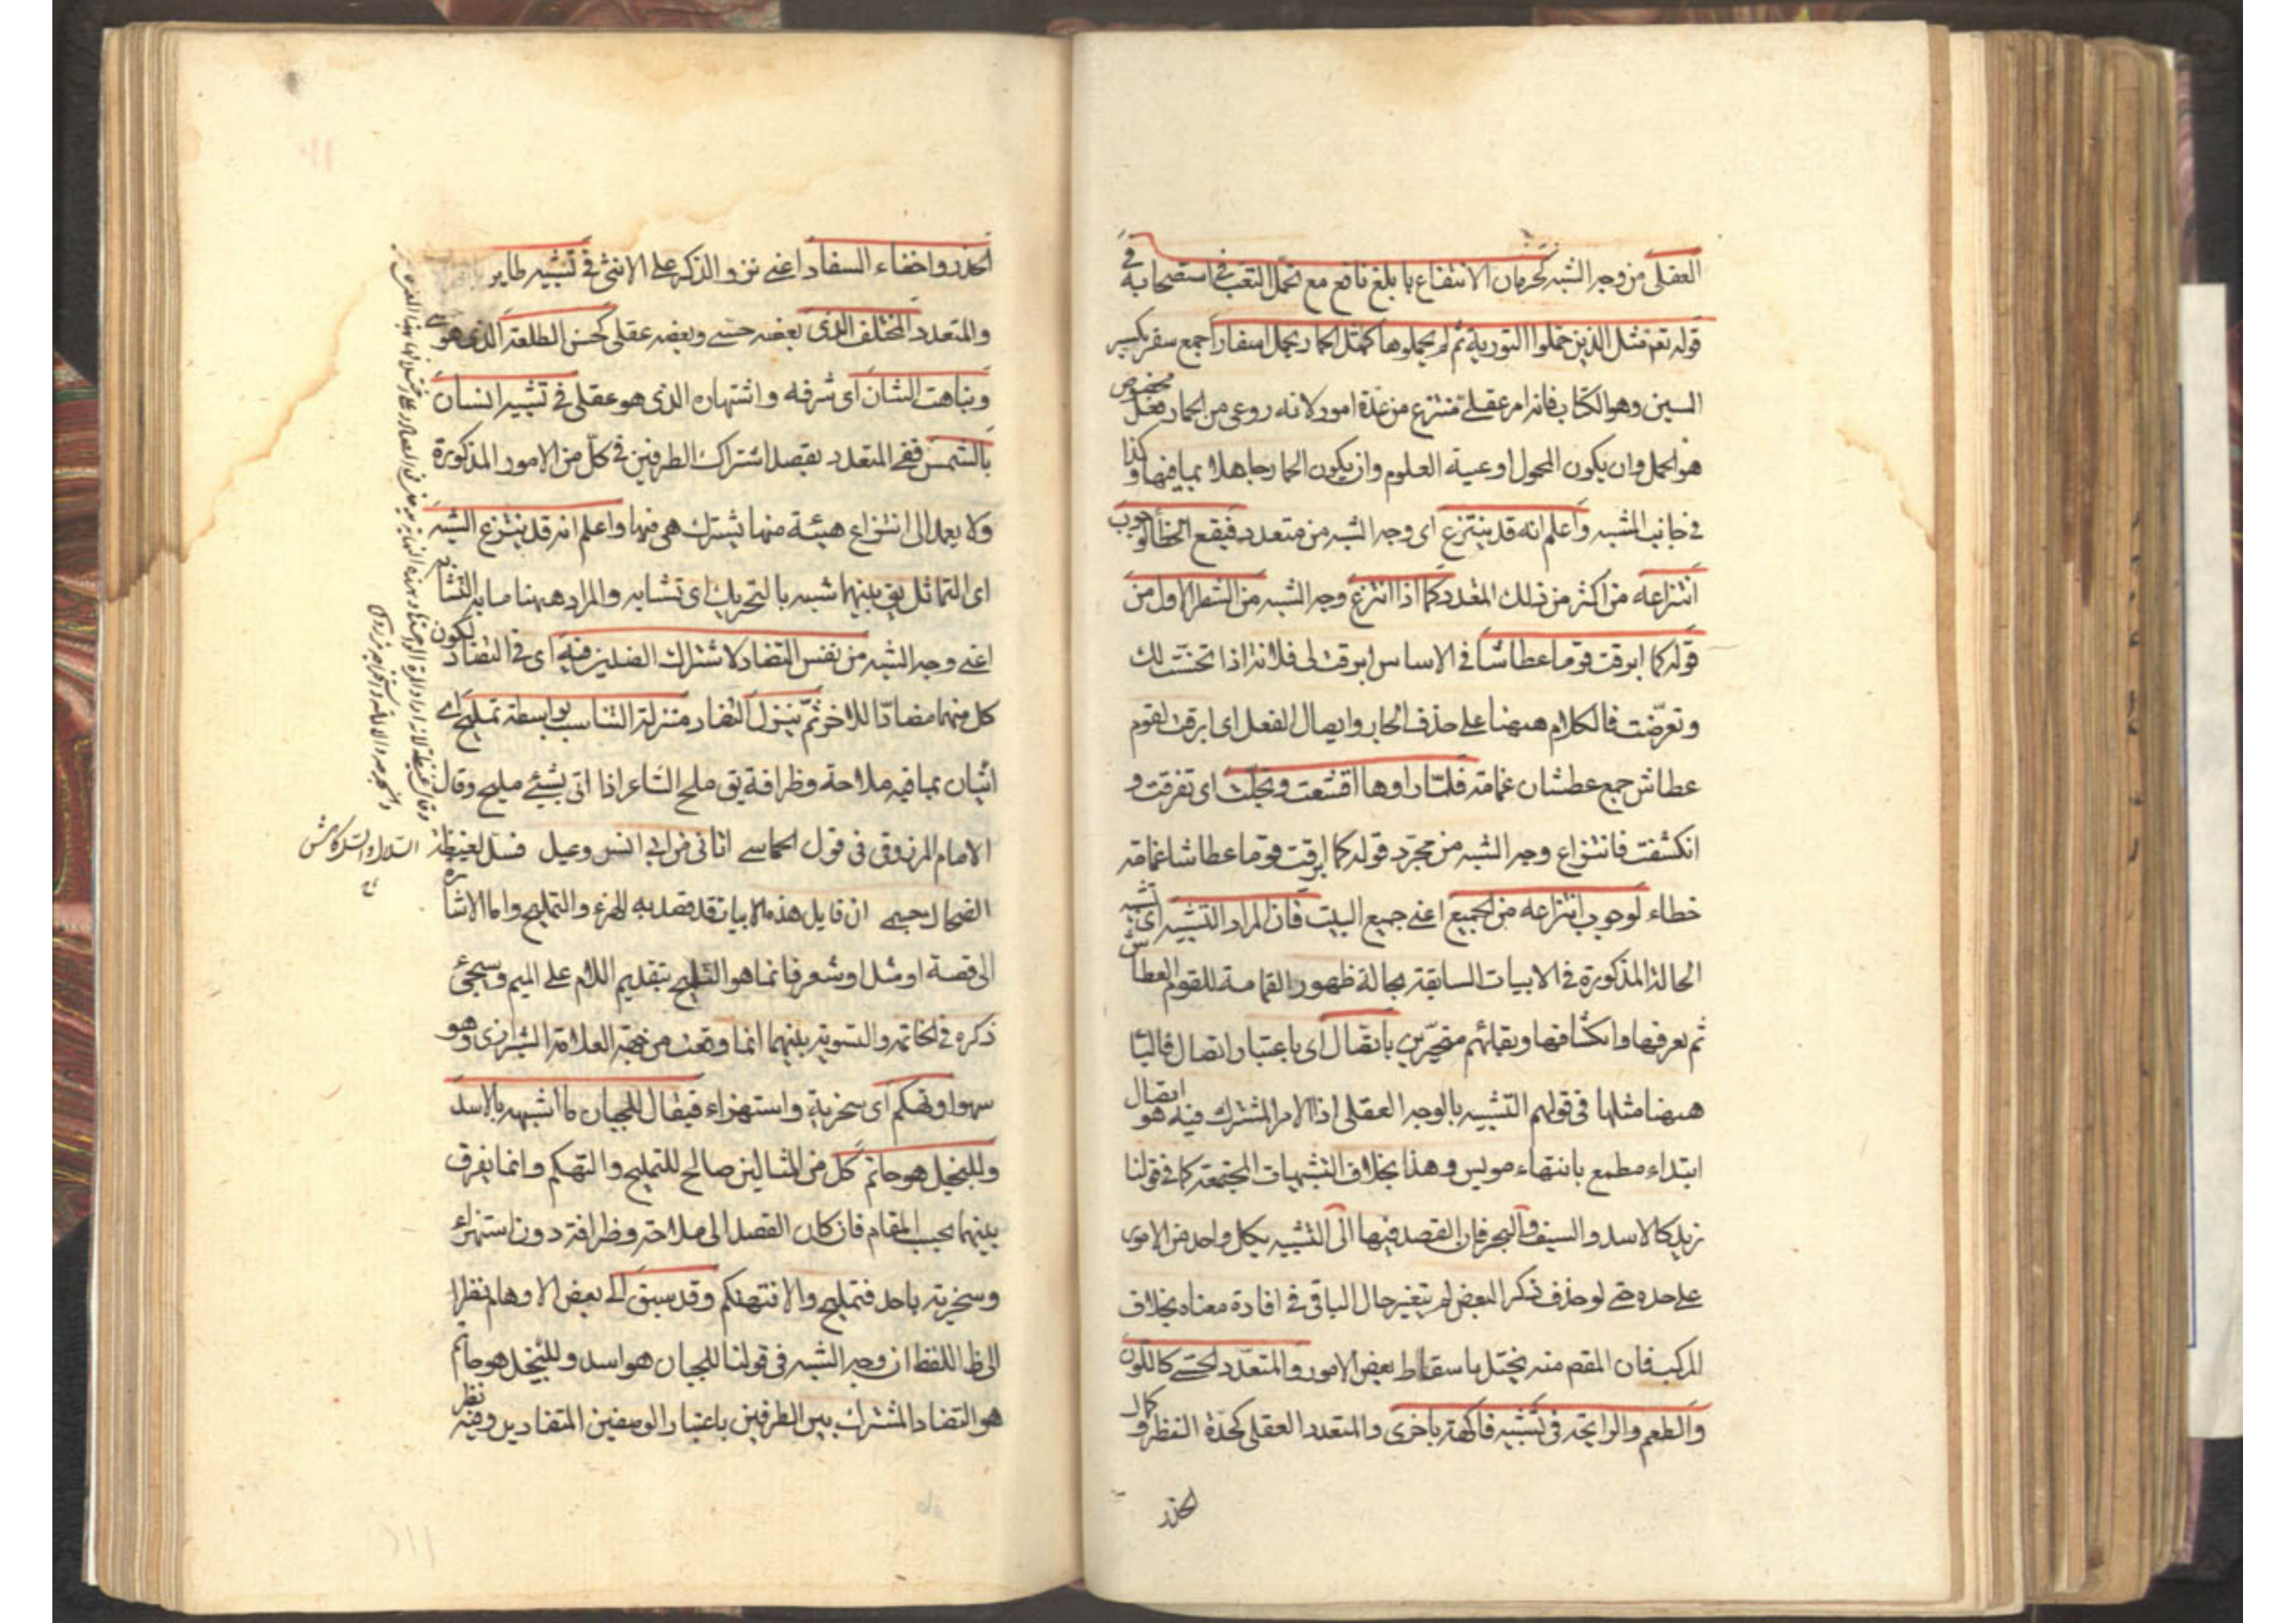 العقلى من وجه الشبه كحرمان الانتفاع با بلغ نافع مع تحمل التعب فى استصحابه فى
قوله تعم مثل الذين حملوا التورية ثم لم يحملوها كمثل الحمار يحمل اسفارا جمع سفر بكسر
السين وهو الكتاب فانه امر عقلے منتزع من عدة امور لانه روعى من الحمار فعل مخصوص
هو الحمل وان يكون المحمول اوعية العلوم وان يكون الحمار جاهلا بما فيها وكذا
فى جانب المشبه واعلم انه قد ينتزع اى وجه الشبه من متعدد فيقع الخطأ لوجوب
انتزاعه من اكثر من ذلك المتعدد كما اذا انتزع وجه الشبه من الشطر الاول من
قوله كما ابرقت قوما عطاشا فى الاساس ابرقت لى فلانة اذا تحسنت لك
وتعرضت فالكلام ههنا على حذف الجار وايصال الفعل اى ابرقت لقوم
عطاش جمع عطشان غمامة فلما راوها اقشعت وتجلت اى تفرقت و
انكشفت فانتزاع وجه الشبه من مجرد قوله كما ابرقت قوما عطاشا غمامة
خطاء لوجوب انتزاعه من الجميع اعنے جميع البيت فان المراد التشبيه اى تشبيه
الحالة المذكورة فى الابيات السابقة بحالة ظهور القمامة للقوم العطاش
ثم تعرفها وانكشافها وبقائهم متحيرين باتصال اى باعتبار اتصال فالبا
ههنا مثلها فى قولهم التشبيه بالوجه العقلى اذ الامر المشترك فيه هو اتصال
ابتداء مطمع بانتهاء مويس وهذا بخلاف التشبيهات المجتمعة كما فى قولنا
زيد كالاسد والسيف والبحر فان القصد فيها الى التشبيه بكل واحد من الامور
على حده حتے لو حذف ذكر البعض لم يتغير حال الباقى فى افادة معناه بخلاف
المركب فان المقصم منه يختل باسقاط بعض الامور والمتعدد الحسے كاللون
والطعم والرايحة فى تشبيه فاكهة باخرى والمتعدد العقلى كحدة النظر وكمال
الحذر
الحذر واخفاء السفاد اعنے نزو الذكر على الانثى فى تشبيه طاير
والمتعدد المختلف الذى بعضه حسے وبعضه عقلى كحسن الطلعة الذى هو حسے
ونباهت الشان اى شرفه واشتهاره الذى هو عقلى فى تشبيه انسان
بالشمس ففے المتعدد يقصد اشتراك الطرفين فى كل من الامور المذكورة
ولا يعمد الى انتزاع هيئة منها يشترك هى فيها واعلم انه قد ينتزع الشبه
اى التماثل يق بينهما شبه بالتحريك اى تشابه والمراد ههنا ما به التشابه
اعنے وجه الشبه من نفس التضاد لاشتراك الضدين فيه اى فى التضاد لكون
كل منهما مضادا للاخر ثم ينزل التضاد منزلة التناسب بواسطة تمليح اے
اتيان بما فيه ملاحة وظرافة يق ملح الشاعر اذا اتى بشيئ مليح وقال
الامام المرزوقى فى قول الحماسے اتانى من ابى انس وعيل فسل لغيظة
الضحاك جسمے ان قايل هذه الابيات قد قصد به الهزء والتمليح واما الاشارة
الى قصة او مثل او شعر فانما هو التلميح بتقديم اللام على الميم وسيجئ
ذكره فى الخاتمة والتسوية بينهما انما وقعت من جهة العلامة الشيرازى وهو
سهو او تهكم اى سخرية واستهزاء فيقال للجبان ما اشبهه بالاسد
وللبخيل هو حاتم كل من المثالين صالح للتمليح والتهكم وانما يفرق
بينهما بحسب المقام فان كان القصد الى ملاحة وظرافة دون استهزاء
وسخرية باحد فتمليح والا فتهكم وقد سبق الى بعض الاوهام نظرا
الى ظ اللفظ ان وجه الشبه فى قولنا للجبان هو اسد وللبخيل هو حاتم
هو التضاد المشترك بين الطرفين باعتبار الوصفين المتضادين وفيه نظر